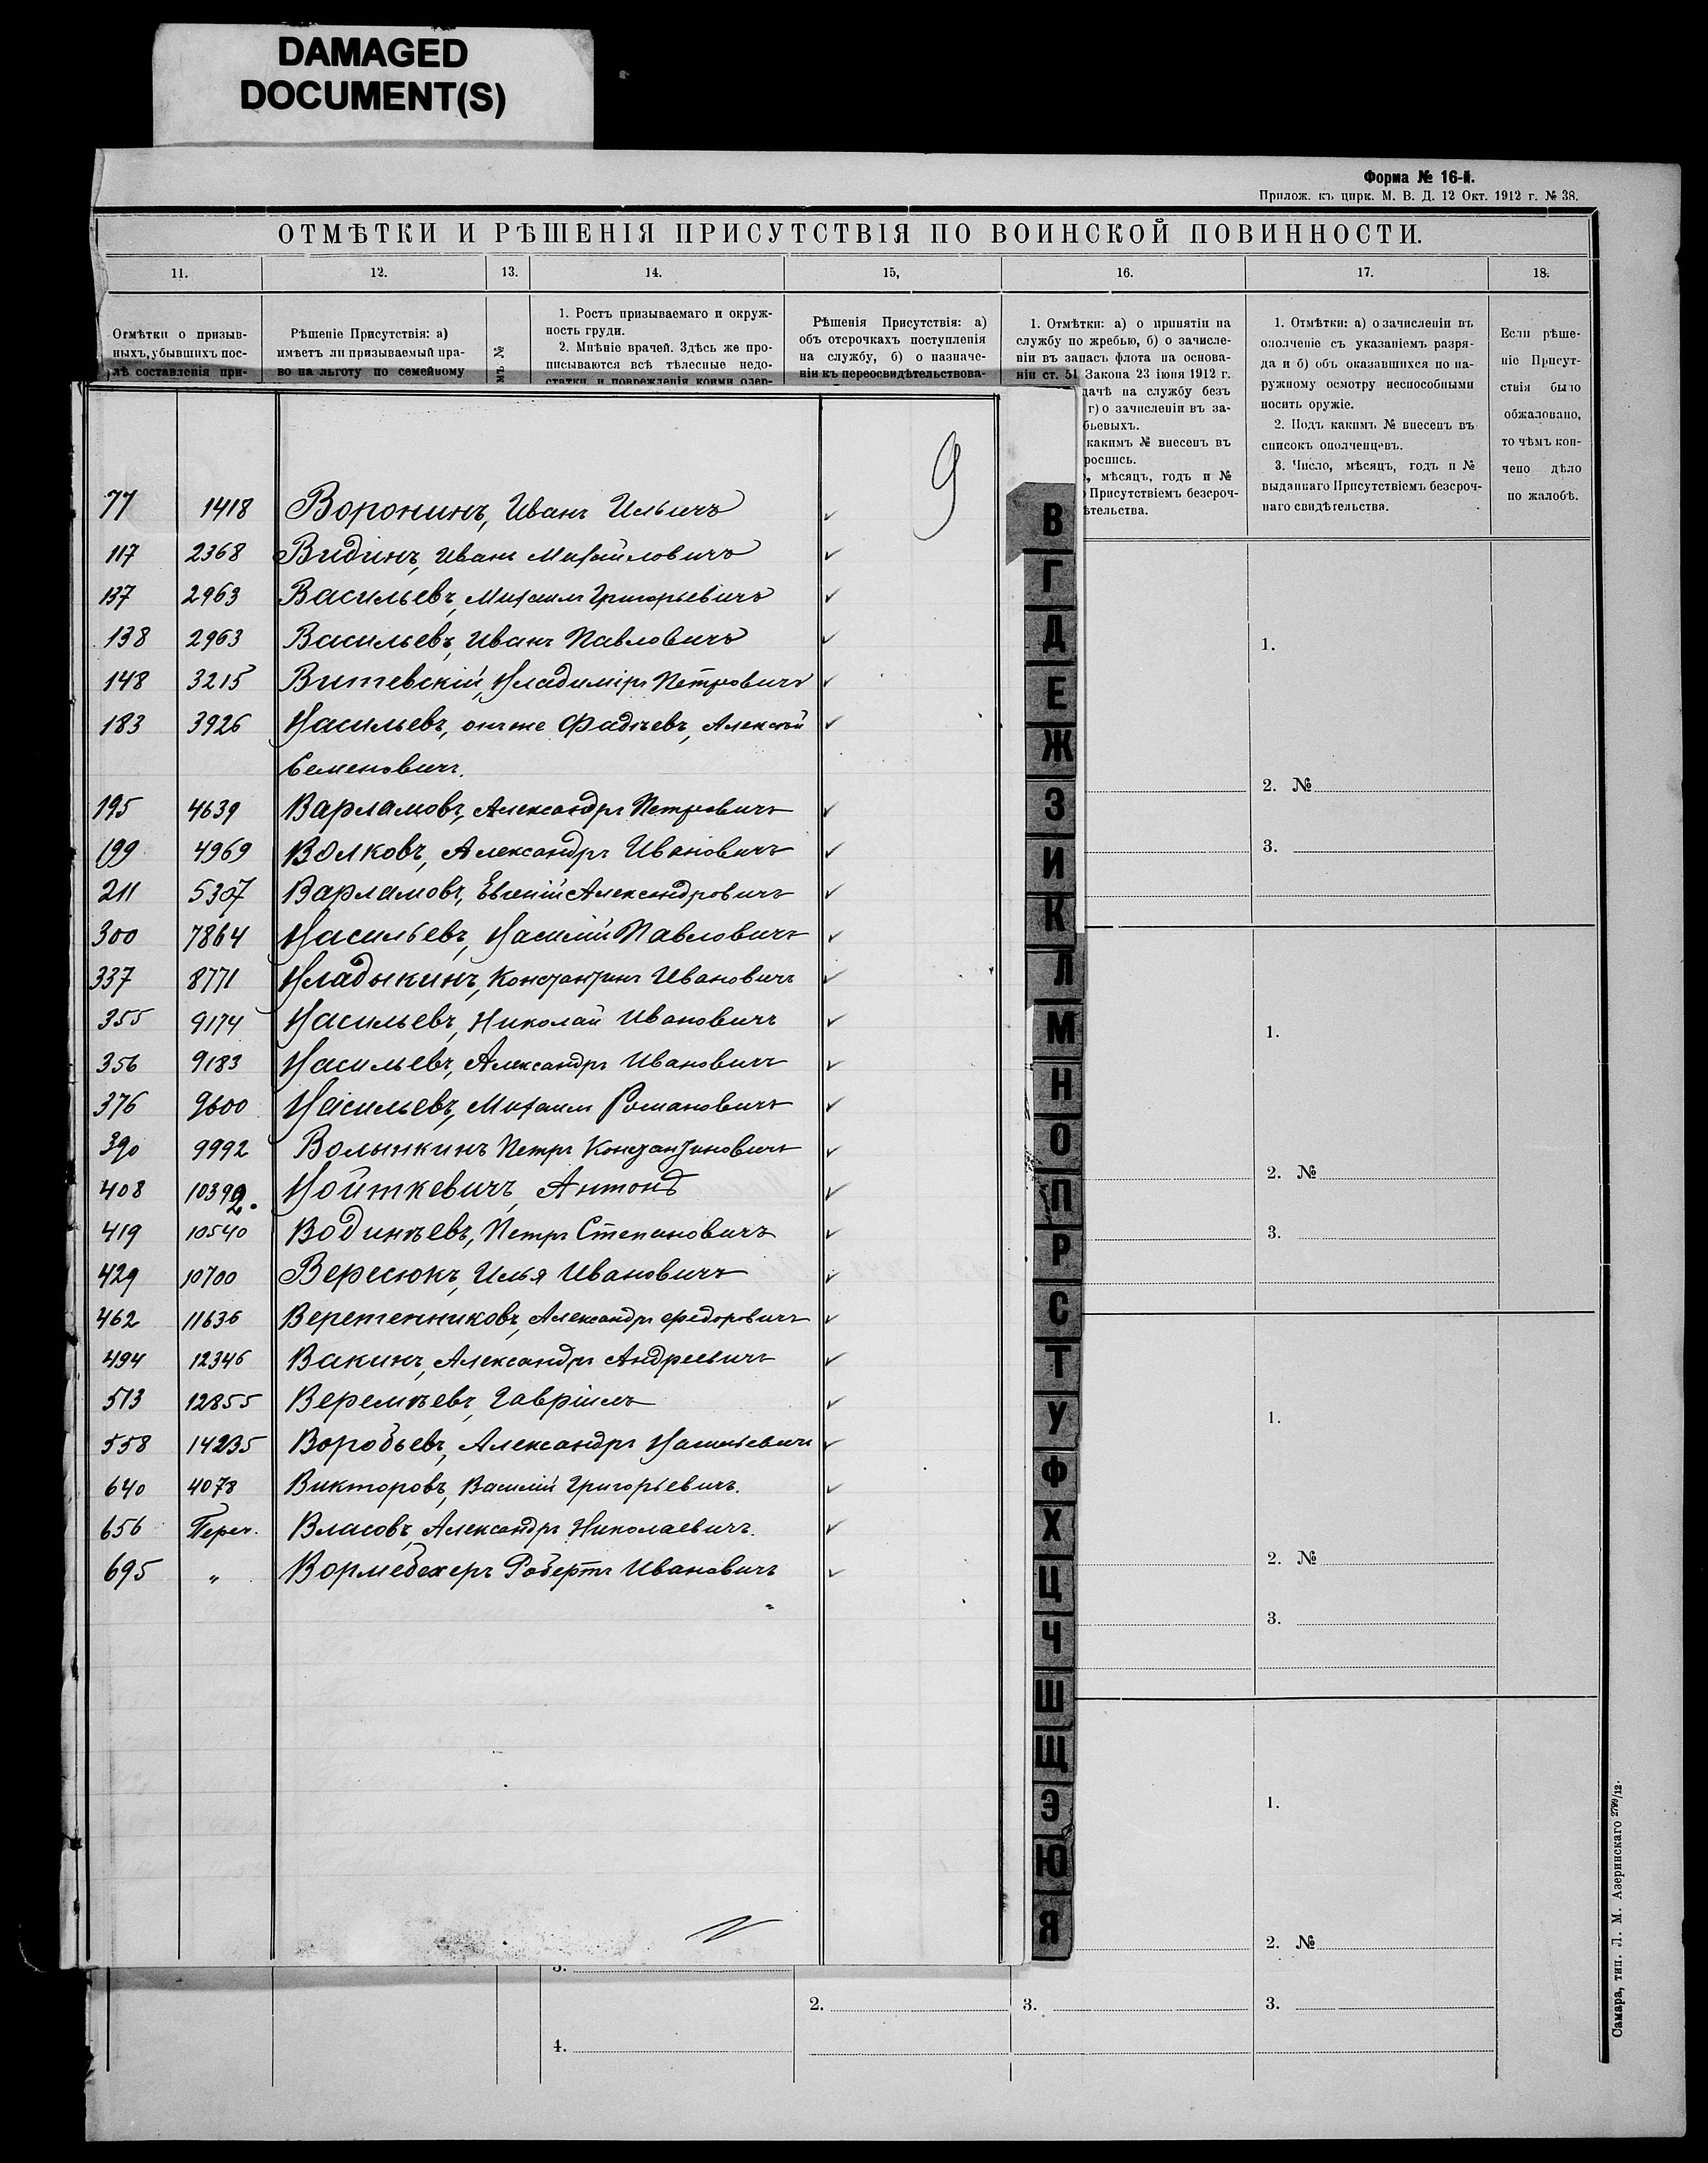 DAMAGED
DOCUMENT(S)
Форма № 16-й.
Прилож. къ цирк. М. В. Д. 12 Окт. 1912 г. № 38.
ОТМѢТКИ И РѢШЕНІЯ ПРИСУТСТВІЯ ПО ВОИНСКОЙ ПОВИННОСТИ.
11. 12. 13. 14. 15, 16. 17. 18.
Отмѣтки о призыв-
ныхъ, убывшихъ пос-
лѣ составленія при-
Рѣшеніе Присутствія: а)
имѣетъ ли призываемый пра-
во на льготу по семейному
№
мъ
1. Ростъ призываемаго и окруж-
ность груди.
2. Мнѣніе врачей. Здѣсь же про-
писываются всѣ тѣлесные недо-
статки и поврежденія коими одер-
Рѣшенія Присутствія: а)
объ отсрочкахъ поступленія
на службу, б) о назначе-
ніи къ переосвидѣтельствова-
1. Отмѣтки: а) о принятіи на
службу по жребью, б) о зачисле-
ніи въ запасъ флота на основа-
ніи ст. 51 Закона 23 іюня 1912 г.
дачѣ на службу безъ
г) о зачисленіи въ за-
бьевыхъ.
какимъ № внесенъ въ
роспись.
, мѣсяцъ, годъ и №
Присутствіемъ безсроч-
ѣтельства.
1. Отмѣтки: а) о зачисленіи въ
ополченіе съ указаніемъ разря-
да и б) объ оказавшихся по на-
ружному осмотру неспособными
носить оружіе.
2. Подъ какимъ № внесенъ въ
списокъ ополченцевъ.
3. Число, мѣсяцъ, годъ и №
выданнаго Присутствіемъ безсроч-
наго свидѣтельства.
Если рѣше-
ніе Присут-
ствія было
обжаловано,
то чѣмъ кон-
чено дѣло
по жалобѣ.
9
77 1418 Воронинъ, Иванъ Ильичъ
117 2368 Видинъ, Иванъ Михайловичъ
137 2963 Васильевъ, Михаилъ Григорьевичъ
138 2963 Васильевъ, Иванъ Павловичъ
148 3215 Витевскій, Владиміръ Петровичъ
183 3926 Васильевъ, онъ же Фадѣевъ, Алексѣй
Семеновичъ.
195 4639 Варламовъ, Александръ Петровичъ
199 4969 Волковъ, Александръ Ивановичъ
211 5307 Варламовъ, Евгеній Александровичъ
300 7864 Васильевъ, Василій Павловичъ
337 8771 Владыкинъ, Константинъ Ивановичъ
355 9174 Васильевъ, Николай Ивановичъ
356 9183 Васильевъ, Александръ Ивановичъ
376 9600 Васильевъ, Михаилъ Романовичъ
390 9992 Волынкинъ Петръ Константиновичъ
408 10392. Войткевичъ, Антонъ
419 10540 Водинѣевъ, Петръ Степановичъ
429 10700 Вересюкъ, Илья Ивановичъ
462 11636 Веретенниковъ, Александръ Федоровичъ
494 12346 Вакинъ, Александръ Андреевичъ
513 12855 Веремѣевъ, Гавріилъ
558 14235 Воробьевъ, Александръ Васильевичъ
640 4078 Викторовъ, Василій Григорьевичъ.
656 Переч. Власовъ, Александръ Николаевичъ.
695 „ Вормебехеръ Робертъ Ивановичъ
В
Г
Д
Е
Ж
З
И
К
Л
М
Н
О
П
Р
С
Т
У
Ф
Х
Ц
Ч
Ш
Щ
Э
Ю
Я
1.
2. №
3.
1.
2. №
3.
1.
2. №
3.
1.
2. №
3.
3.
4.
2.
3.
Самара, тип. Л. М. Азеринскаго 2799/12.